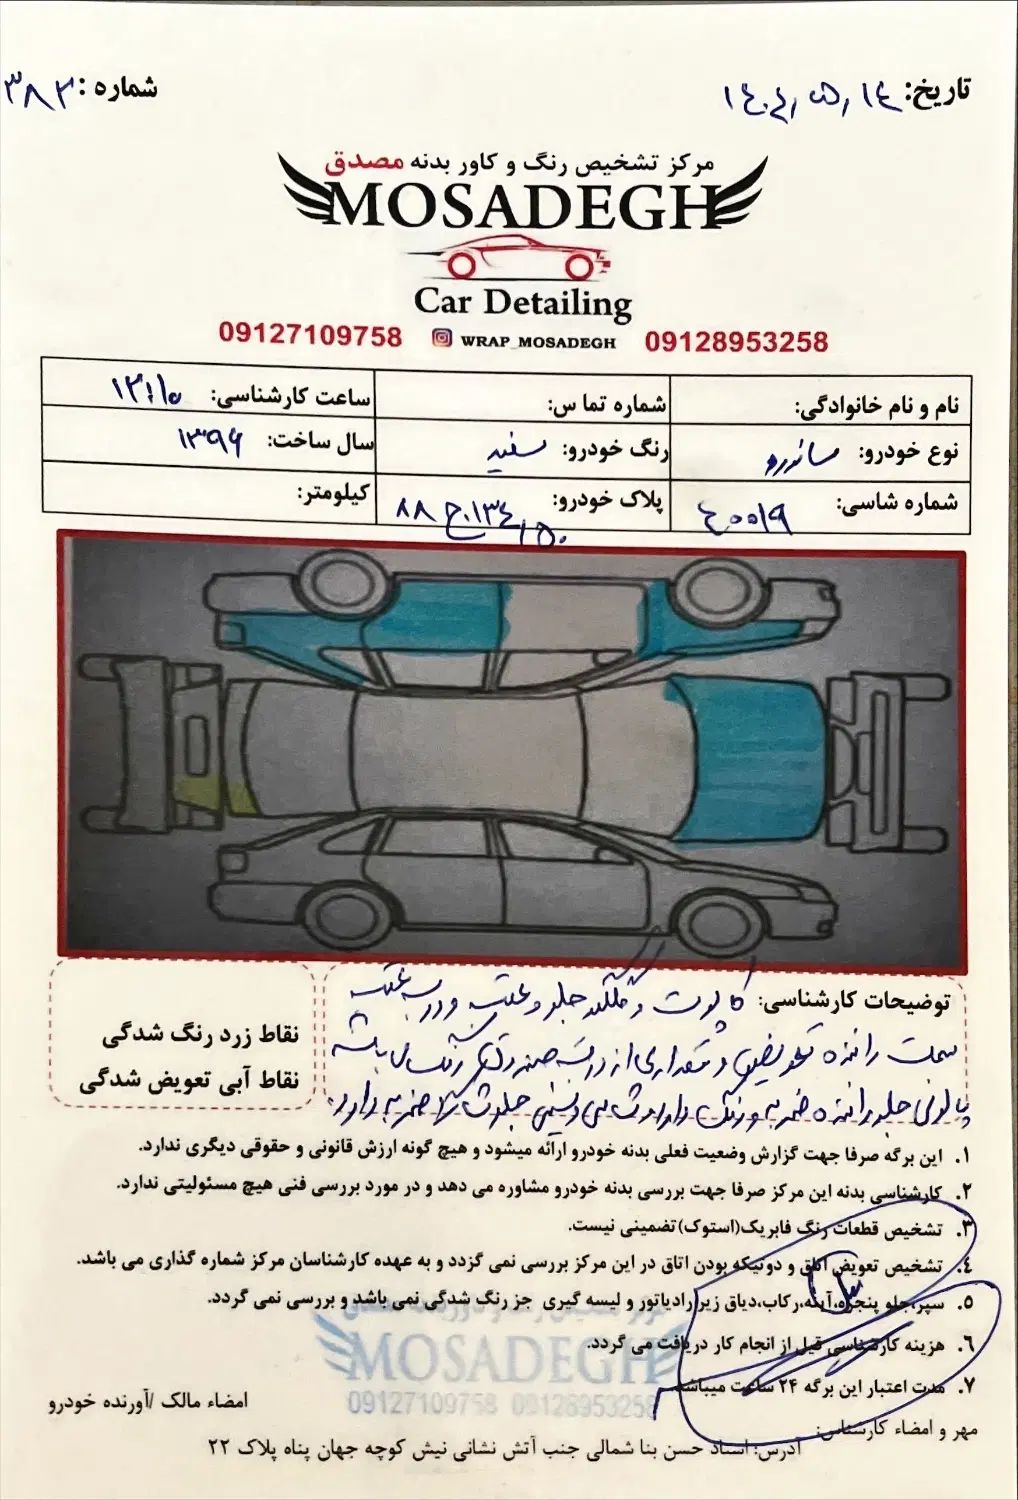 تاریخ: ۱۴۰۴/۰۵/۱۴
شماره: ۳۸۳
مرکز تشخیص رنگ و کاور بدنه مصدق
MOSADEGH
Car Detailing
09127109758 WRAP_MOSADEGH 09128953258
نام و نام خانوادگی: شماره تماس: ساعت کارشناسی: ۱۳:۱۵
نوع خودرو: ساندرو رنگ خودرو: سفید سال ساخت: ۱۳۹۶
شماره شاسی: پلاک خودرو: کیلومتر:
توضیحات کارشناسی: کاپوت و گلگیر جلو و عقب و درب عقب
سمت راننده تعویض و مقداری از درب صندوق رنگ می باشد
پالونی جلو راننده ضربه و رنگ دارد شاسی و سینی جلو شاسی ضربه دارد
نقاط زرد رنگ شدگی
نقاط آبی تعویض شدگی
۱. این برگه صرفا جهت گزارش وضعیت فعلی بدنه خودرو ارائه میشود و هیچ گونه ارزش قانونی و حقوقی دیگری ندارد.
۲. کارشناسی بدنه این مرکز صرفا جهت بررسی بدنه خودرو مشاوره می دهد و در مورد بررسی فنی هیچ مسئولیتی ندارد.
۳. تشخیص قطعات رنگ فابریک(استوک)تضمینی نیست.
۴. تشخیص تعویض اتاق و دوتیکه بودن اتاق در این مرکز بررسی نمی گزدد و به عهده کارشناسان مرکز شماره گذاری می باشد.
۵. سپر،جلو پنجره،آینه،رکاب،دیاق زیر رادیاتور و لیسه گیری جز رنگ شدگی نمی باشد و بررسی نمی گردد.
۶. هزینه کارشناسی قبل از انجام کار دریافت می گردد.
۷. مدت اعتبار این برگه ۲۴ ساعت میباشد.
MOSADEGH
09127109758 09128953258
مهر و امضاء کارشناس: امضاء مالک /آورنده خودرو
آدرس: استاد حسن بنا شمالی جنب آتش نشانی نبش کوچه جهان پناه پلاک ۲۲